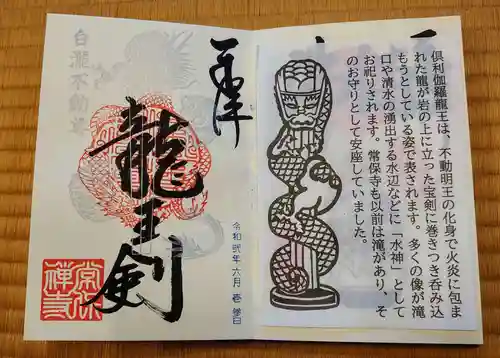 倶利伽羅龍王は、不動明王の化身で火炎に包ま
れた龍が岩の上に立った宝剣に巻きつき呑み込
もうとしている姿で表されます。多くの像が滝
口や清水の湧出する水辺などに「水神」として
お祀りされます。常保寺も以前は滝があり、そ
のお守りとして安座していました。
奉拝
龍王剣
白瀧不動尊
令和弐年六月壱参日
常保
禅寺